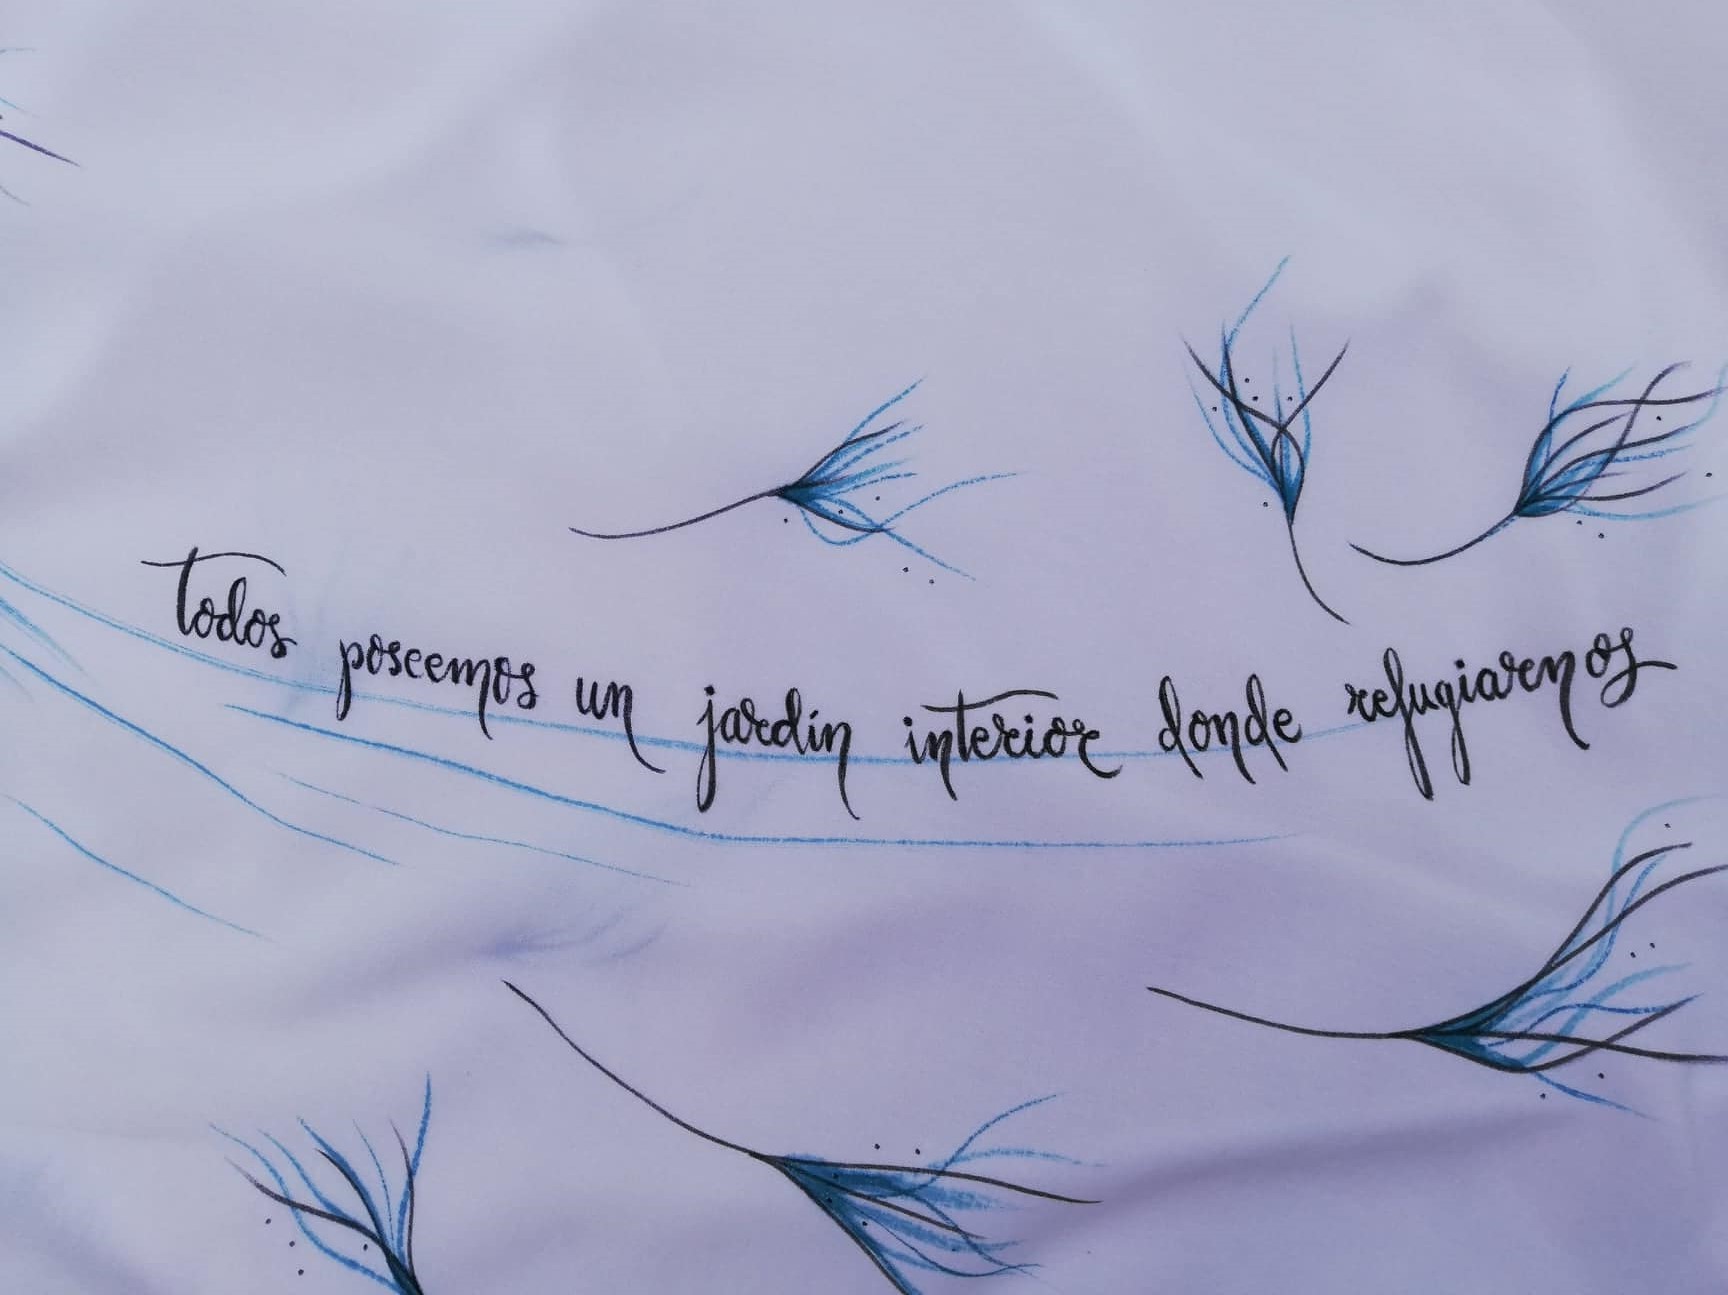 Todos poseemos un jardín interior donde refugiarnos